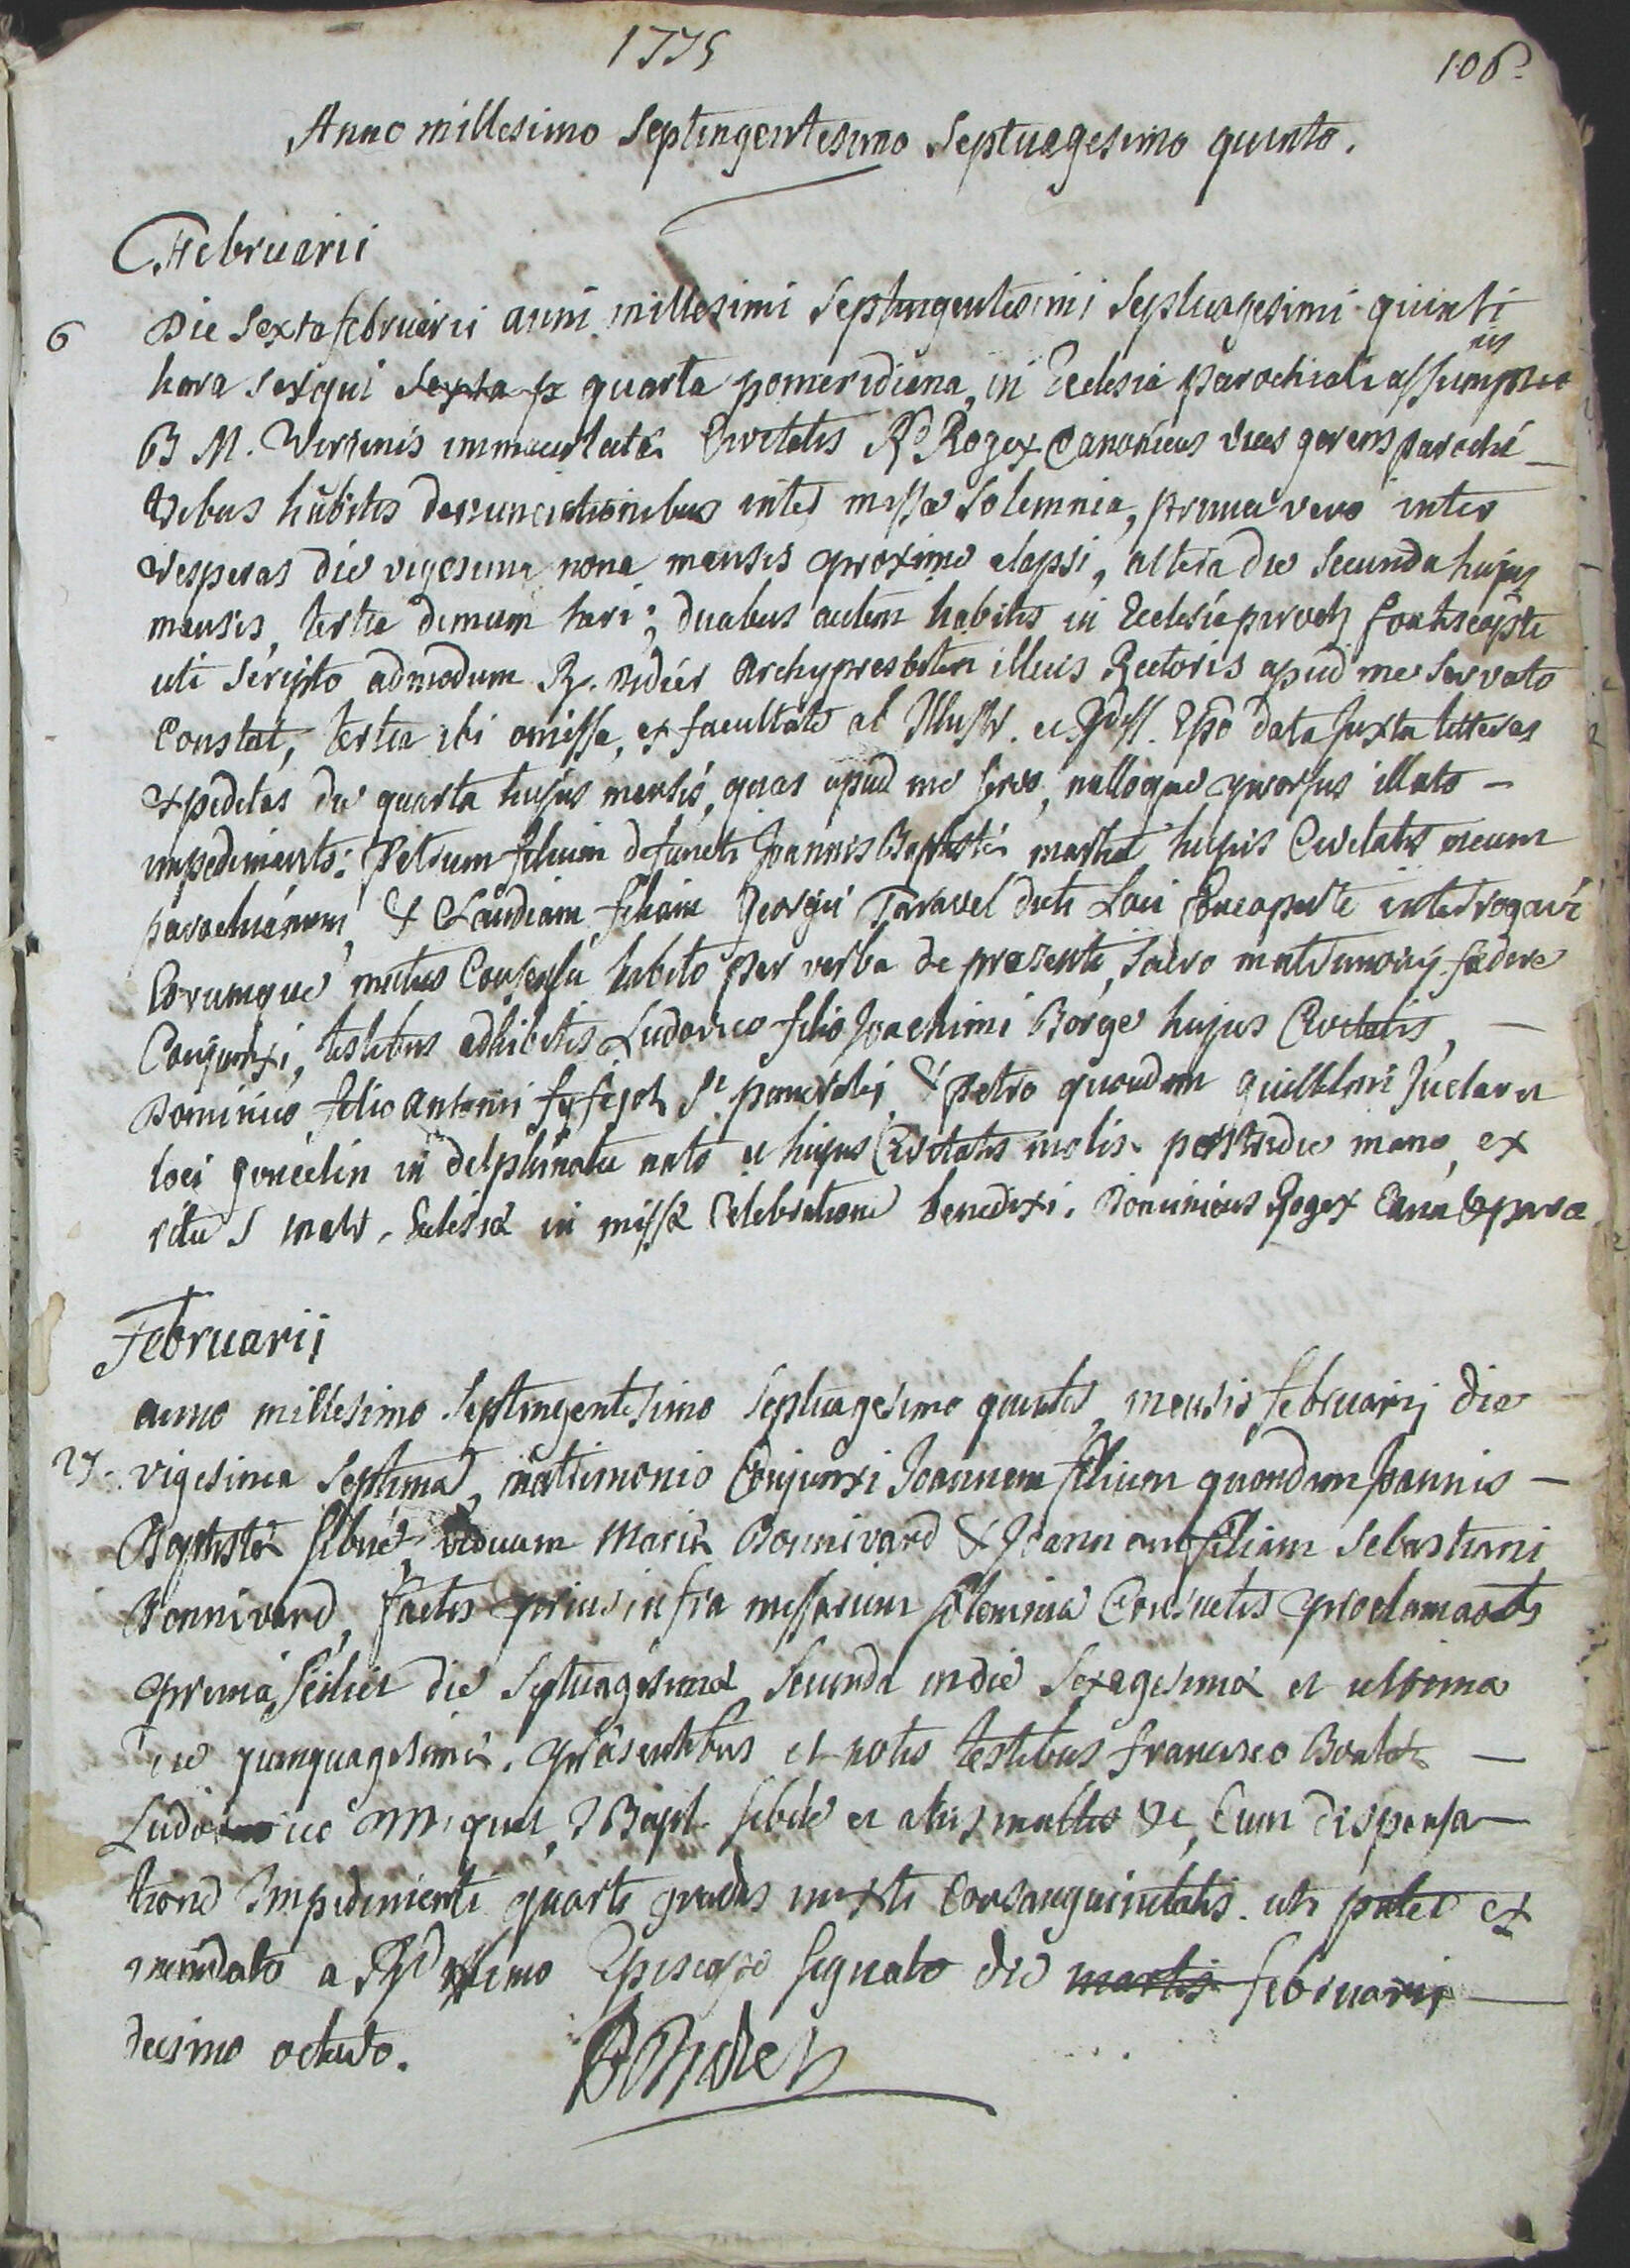 1775
106.
Anno millesimo Septingentesimo Septuagesimo quinto.
Februarii
6 Die Sexta februarii anni millesimi Septingentesimi Septuagesimi quinti
hora sesqui Sexta quarta pomeridiana, in Ecclesia parochiali assumptio
nis
B M. Virginis immaculatæ Civitatis Rd Rogex Canonicus vices gerens parochi
tribus habitis denunciationibus inter missæ Solemnia, prima vero inter
vesperas die vigesima nona mensis proxime elapsi, altera die Secunda hujus
mensis, tertia demum heri; duabus autem habitis in Ecclesia paroch
uti Scripto admodum R. Didier Archypresbiteri illius Rectoris apud me Servato
Constat, tertia ibi omissa, ex facultate ab Illustr. et Rdiss. Epō data Juxta litteras
expeditas die quarta hujus mensis, quas apud me servo, nulloque prorsus illato -
impedimento: Petrum filium defuncti Joannis Baptistæ martinet hujus Civitatis meum
parochianum, & Claudiam filiam Georgii Taravel dicti Loci interrogavi
Eorumque mutuo Consensu habito per verba de præsenti, Sacro matrimonij fœdere
Conjunxi, testibus adhibitis Ludovico filio Joachimi Borge hujus Civitatis, -
Dominico filio Antonii St pancratii & Petro quondam guillelmi
loci goncelin in delphinatu nato et hujus Civitatis postridie mane, ex
ritu S matr. Ecclesiæ in missæ Celebratione benedixi. Dominicus Rogex
Februarii
anno millesimo Septingentesimo Septuagesimo quinto, mensis februarij die
27. vigesima Septima, matrimonio Conjunxi Joannem filium quondam Joannis -
Baptistæ Sibué, viduum Mariæ Bonnivard & Joannam filiam Sebastiani
Bonnivard, factis prius infra missarum Solemnia Consuetis proclamaots
prima Scilicet die Septuagesimæ Secunda in die Sexagesimæ et ultima
die quinquagesimæ. præsentibus et notis testibus francisco -
Ludovico Miquet, J Bapt. Sibué et aliis multis &c, Cum dispensa-
tione Impedimenti quarti gradus mixti Consanguinitatis. uti patet ex
mandato a Rdissimo Episcopo Signato die martis februarii -
decimo octavo.